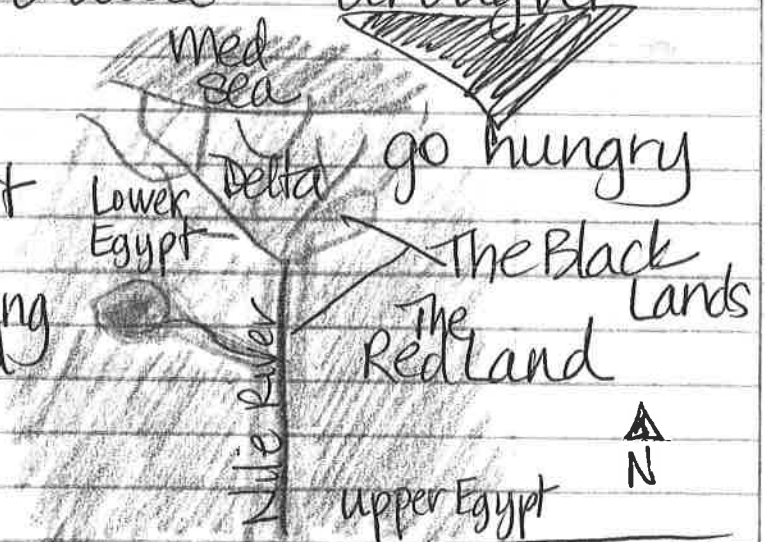 Med
sea
go hungry
Delta
Lower
Egypt
The Black
Lands
The
Red Land
Nile River
N
upper Egypt